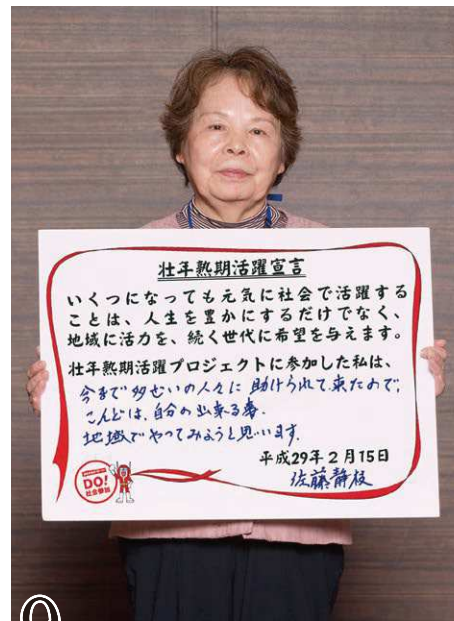 壮年熟期活躍宣言
いくつになっても元気に社会で活躍する
ことは、人生を豊かにするだけでなく、
地域に活力を、続く世代に希望を与えます。
壮年熟期活躍プロジェクトに参加した私は、
今まで多ぜいの人々に助けられて来たので、
こんどは、自分の出来る事、
地域でやってみようと思います。
平成29年2月15日
佐藤静枝
DO!
社会参加